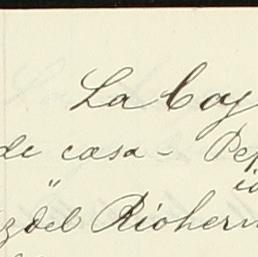 La Caj
de casa - Pep
" id
z del Rioherm